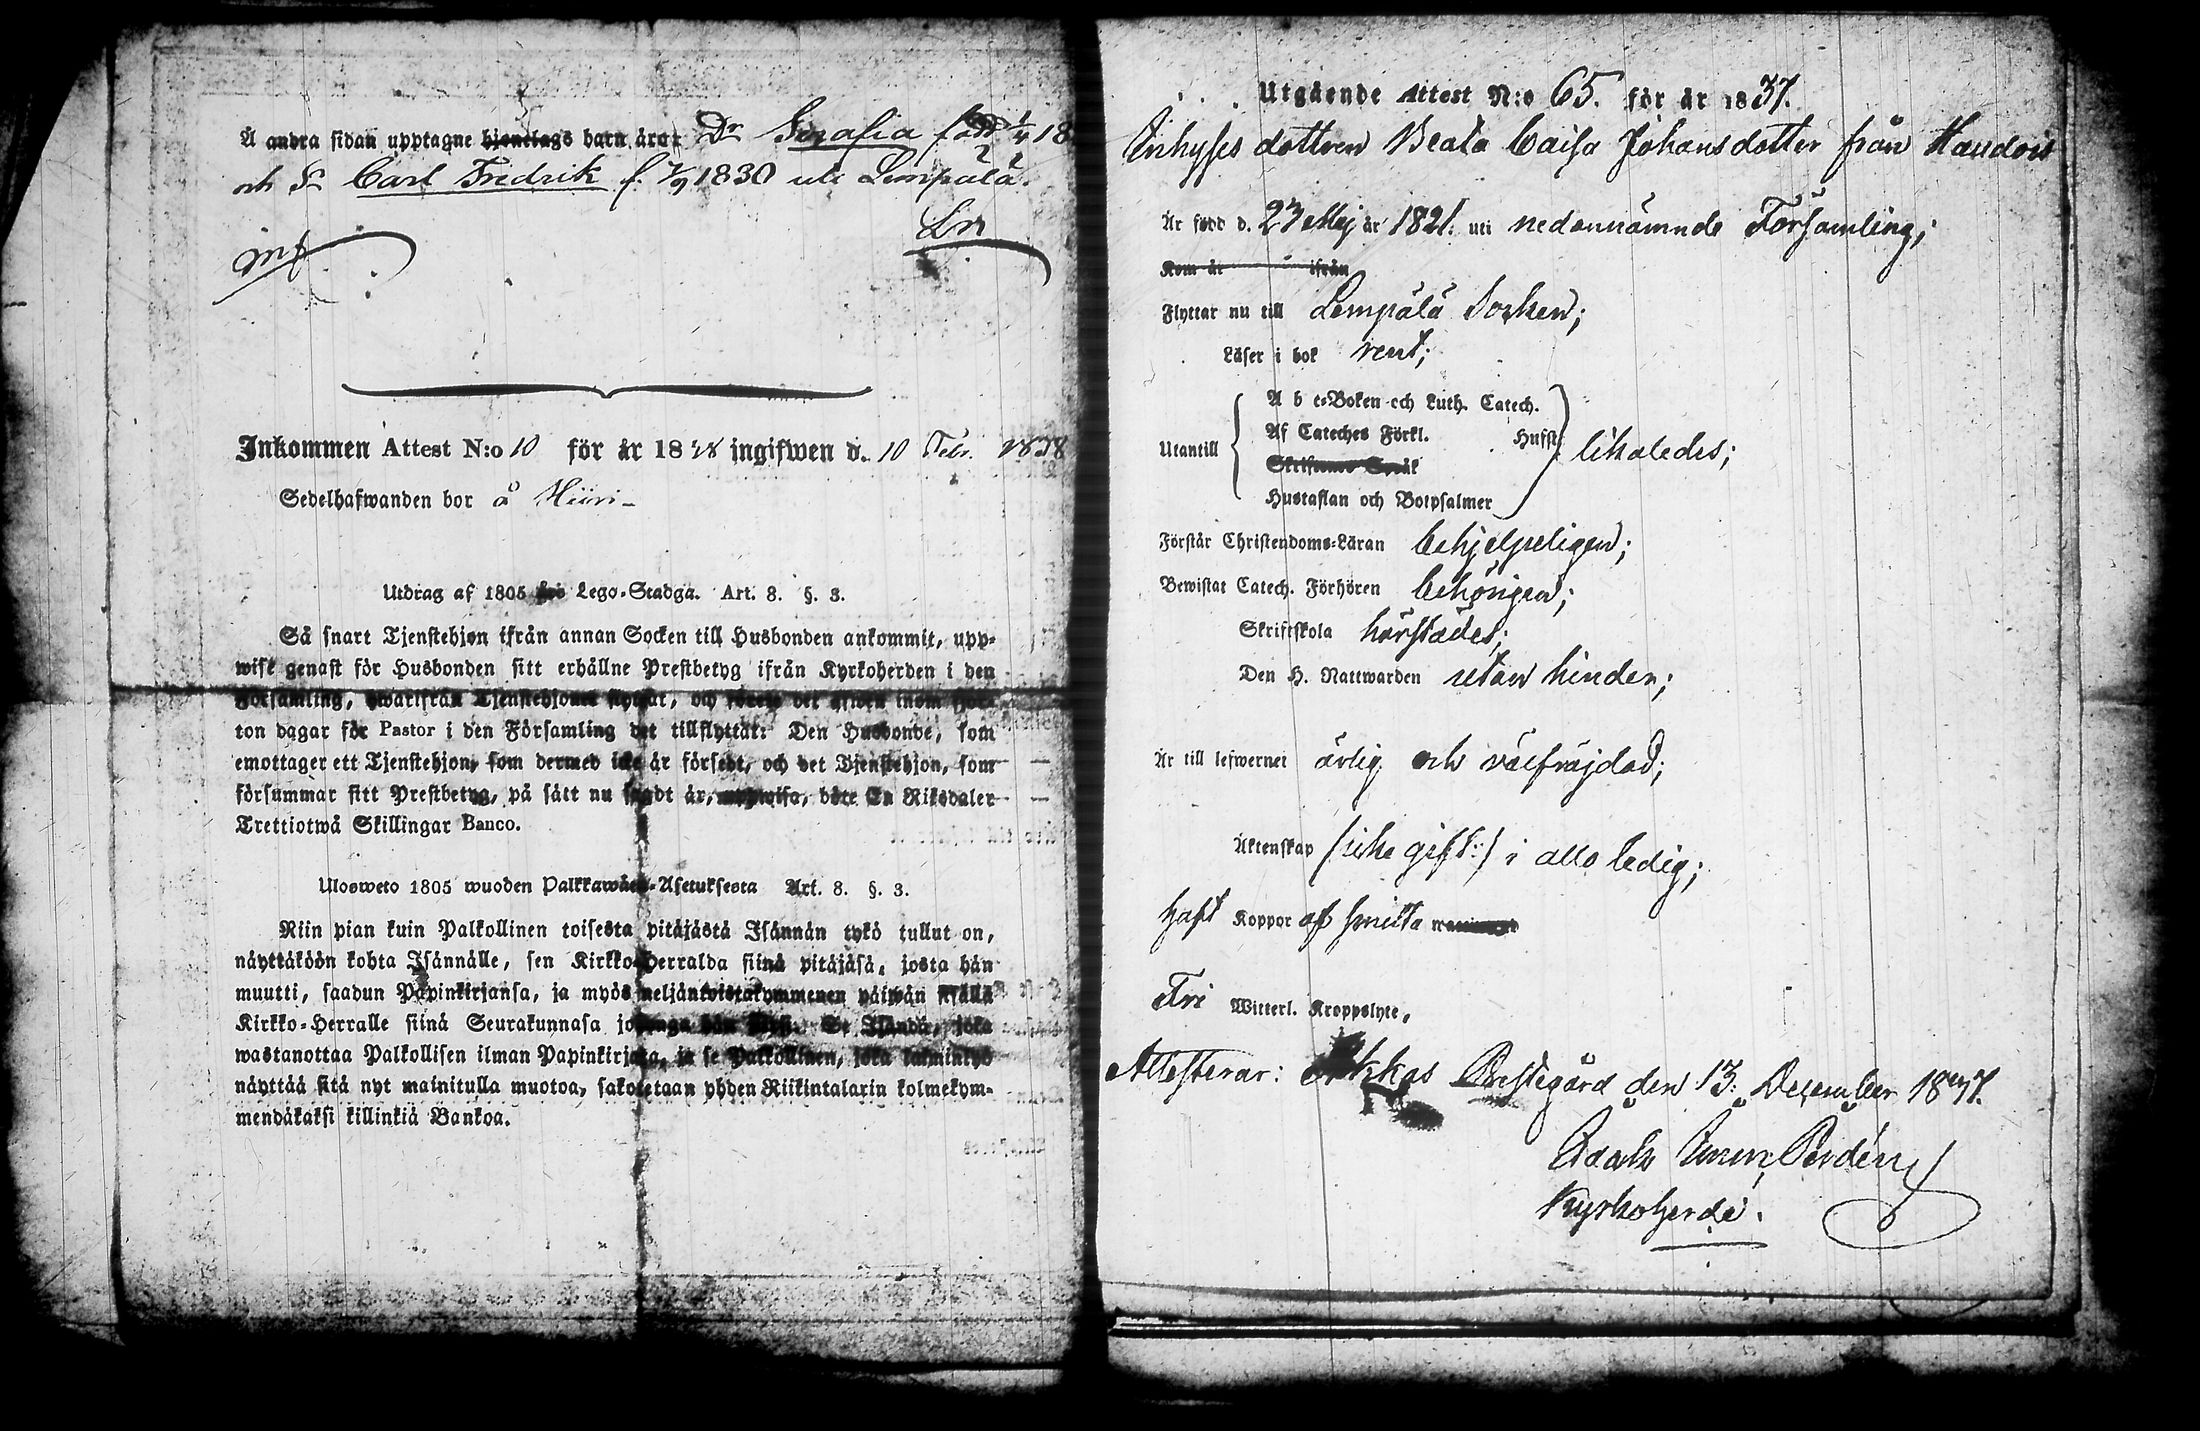 Å andra sidan upptagne hjonelags barn äro: Dr Serafia född 18
och Sn Carl Fredrik f. 7/9 1830 uti Lempälä.
Inkommen Attest N:o 10 för år 1838 ingifwen d. 10 Febr. 1838
Sedelhafwanden bor å Hiiri
Utdrag af 1805 års Lego-Stadga. Art. 8. §. 3.
Så snart Tjenstehjon ifrån annan Socken till Husbonden ankommit, upp-
wise genast för Husbonden sitt erhållne Prestbetyg ifrån Kyrkoherden i den
Församling, hwarifrån Tjenstehjonet flyttat, och förete det äfwen inom fjor-
ton dagar för Pastor i den Församling det tillflyttat: Den Husbonde, som
emottager ett Tjenstehjon, som dermed icke är försedt, och det Tjenstehjon, som
försummar sitt Prestbetyg, på sätt nu sagdt är, uppwisa, böte En Riksdaler
Trettiotwå Skillingar Banco.
Ulosweto 1805 wuoden Palkkawäen-Asetuksesta Art. 8. §. 3.
Niin pian kuin Palkollinen toisesta pitäjästä Isännän tykö tullut on,
näyttäköön kohta Isännälle, sen Kirkko-Herralda siinä pitäjäsä, josta hän
muutti, saadun Papinkirjansa, ja myös neljäntoistakymmenen päiwän sisällä
Kirkko-Herralle siinä Seurakunnasa johonga hän Se Isändä, joka
wastanottaa Palkollisen ilman Papinkirjata, ja se Palkollinen, joka laiminlyö
näyttää sitä nyt mainitulla muotoa, sakotetaan yhden Riikintalarin kolmekym-
mendäkaksi killinkiä Bankoa.
Utgående Attest N:o 65. för år 1837.
Inhyses dottren Beata Caisa Johansdotter från Haudois
Är född d. 23 Maj år 1821. uti nedannämnde Församling;
Kom år ifrån
Flyttar nu till Lempälä Socken;
Läser i bok rent;
A b c-Boken och Luth. Catech.
Af Cateches Förkl. Husf.
Utantill likaledes;
Skriftenes Språk
Hustaflan och Botpsalmer
Förstår Christendoms-Läran behjelpeligen;
Bewistat Catech. Förhören behörigen;
Skriftskola härstädes;
Den H. Nattwarden utan hinder;
Är till lefwernet ärlig och välfräjdad;
Äktenskap (icke gift:) i allo ledig;
haft Koppor af smitta
Fri Witterl. Kroppslyte,
Attesterar: Akkas Prestegård den 13. December 1837.
Kyrkoherde.